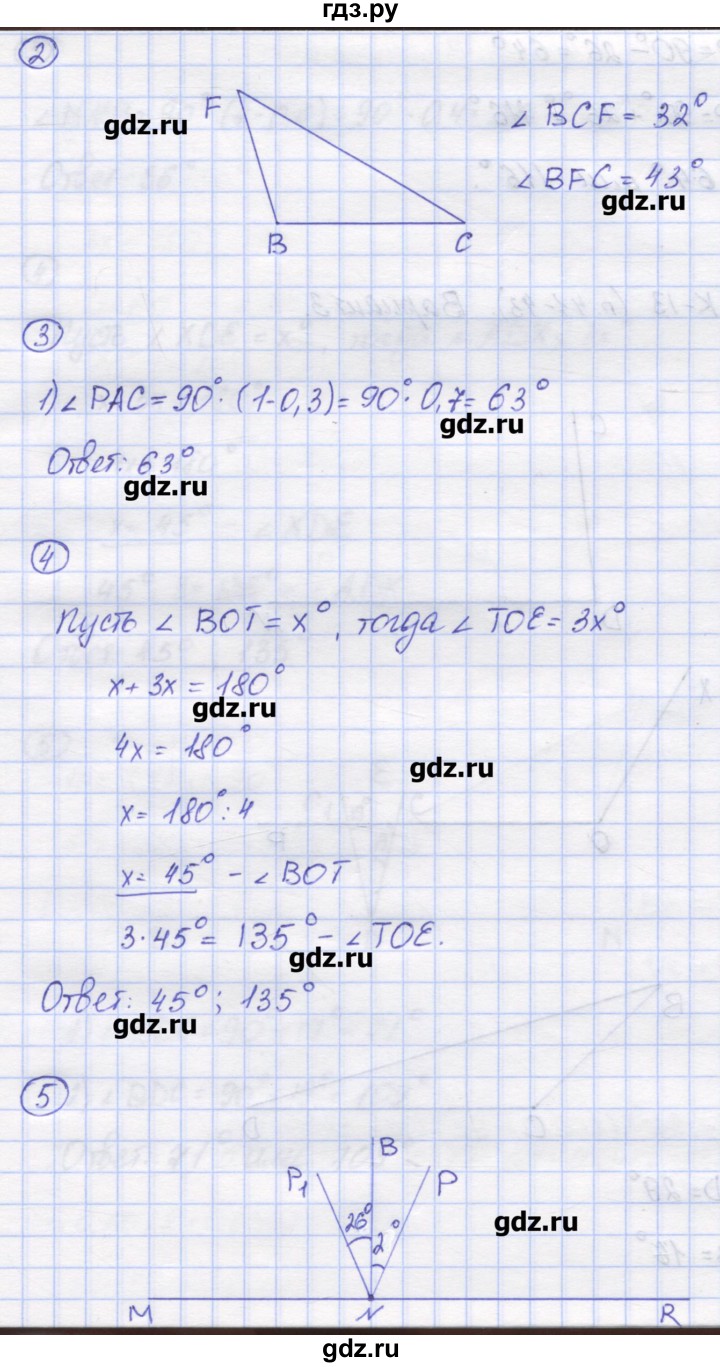 гдз.ру
2
F
gdz.ru
∠ BCF = 32°
∠ BFC = 43°
gdz.ru
B
C
3
1) ∠ PAC = 90° · (1-0,3) = 90° · 0,7 = 63°
gdz.ru
Ответ: 63°
gdz.ru
4
Пусть ∠ BOT = x°, тогда ∠ TOE = 3x°
x + 3x = 180°
gdz.ru
4x = 180°
gdz.ru
x = 180° : 4
x = 45° - ∠ BOT
3 · 45° = 135° - ∠ TOE.
gdz.ru
Ответ: 45°; 135°
gdz.ru
5
B
P₁
P
26°
2°
gdz.ru
M
N
R
gdz.ru